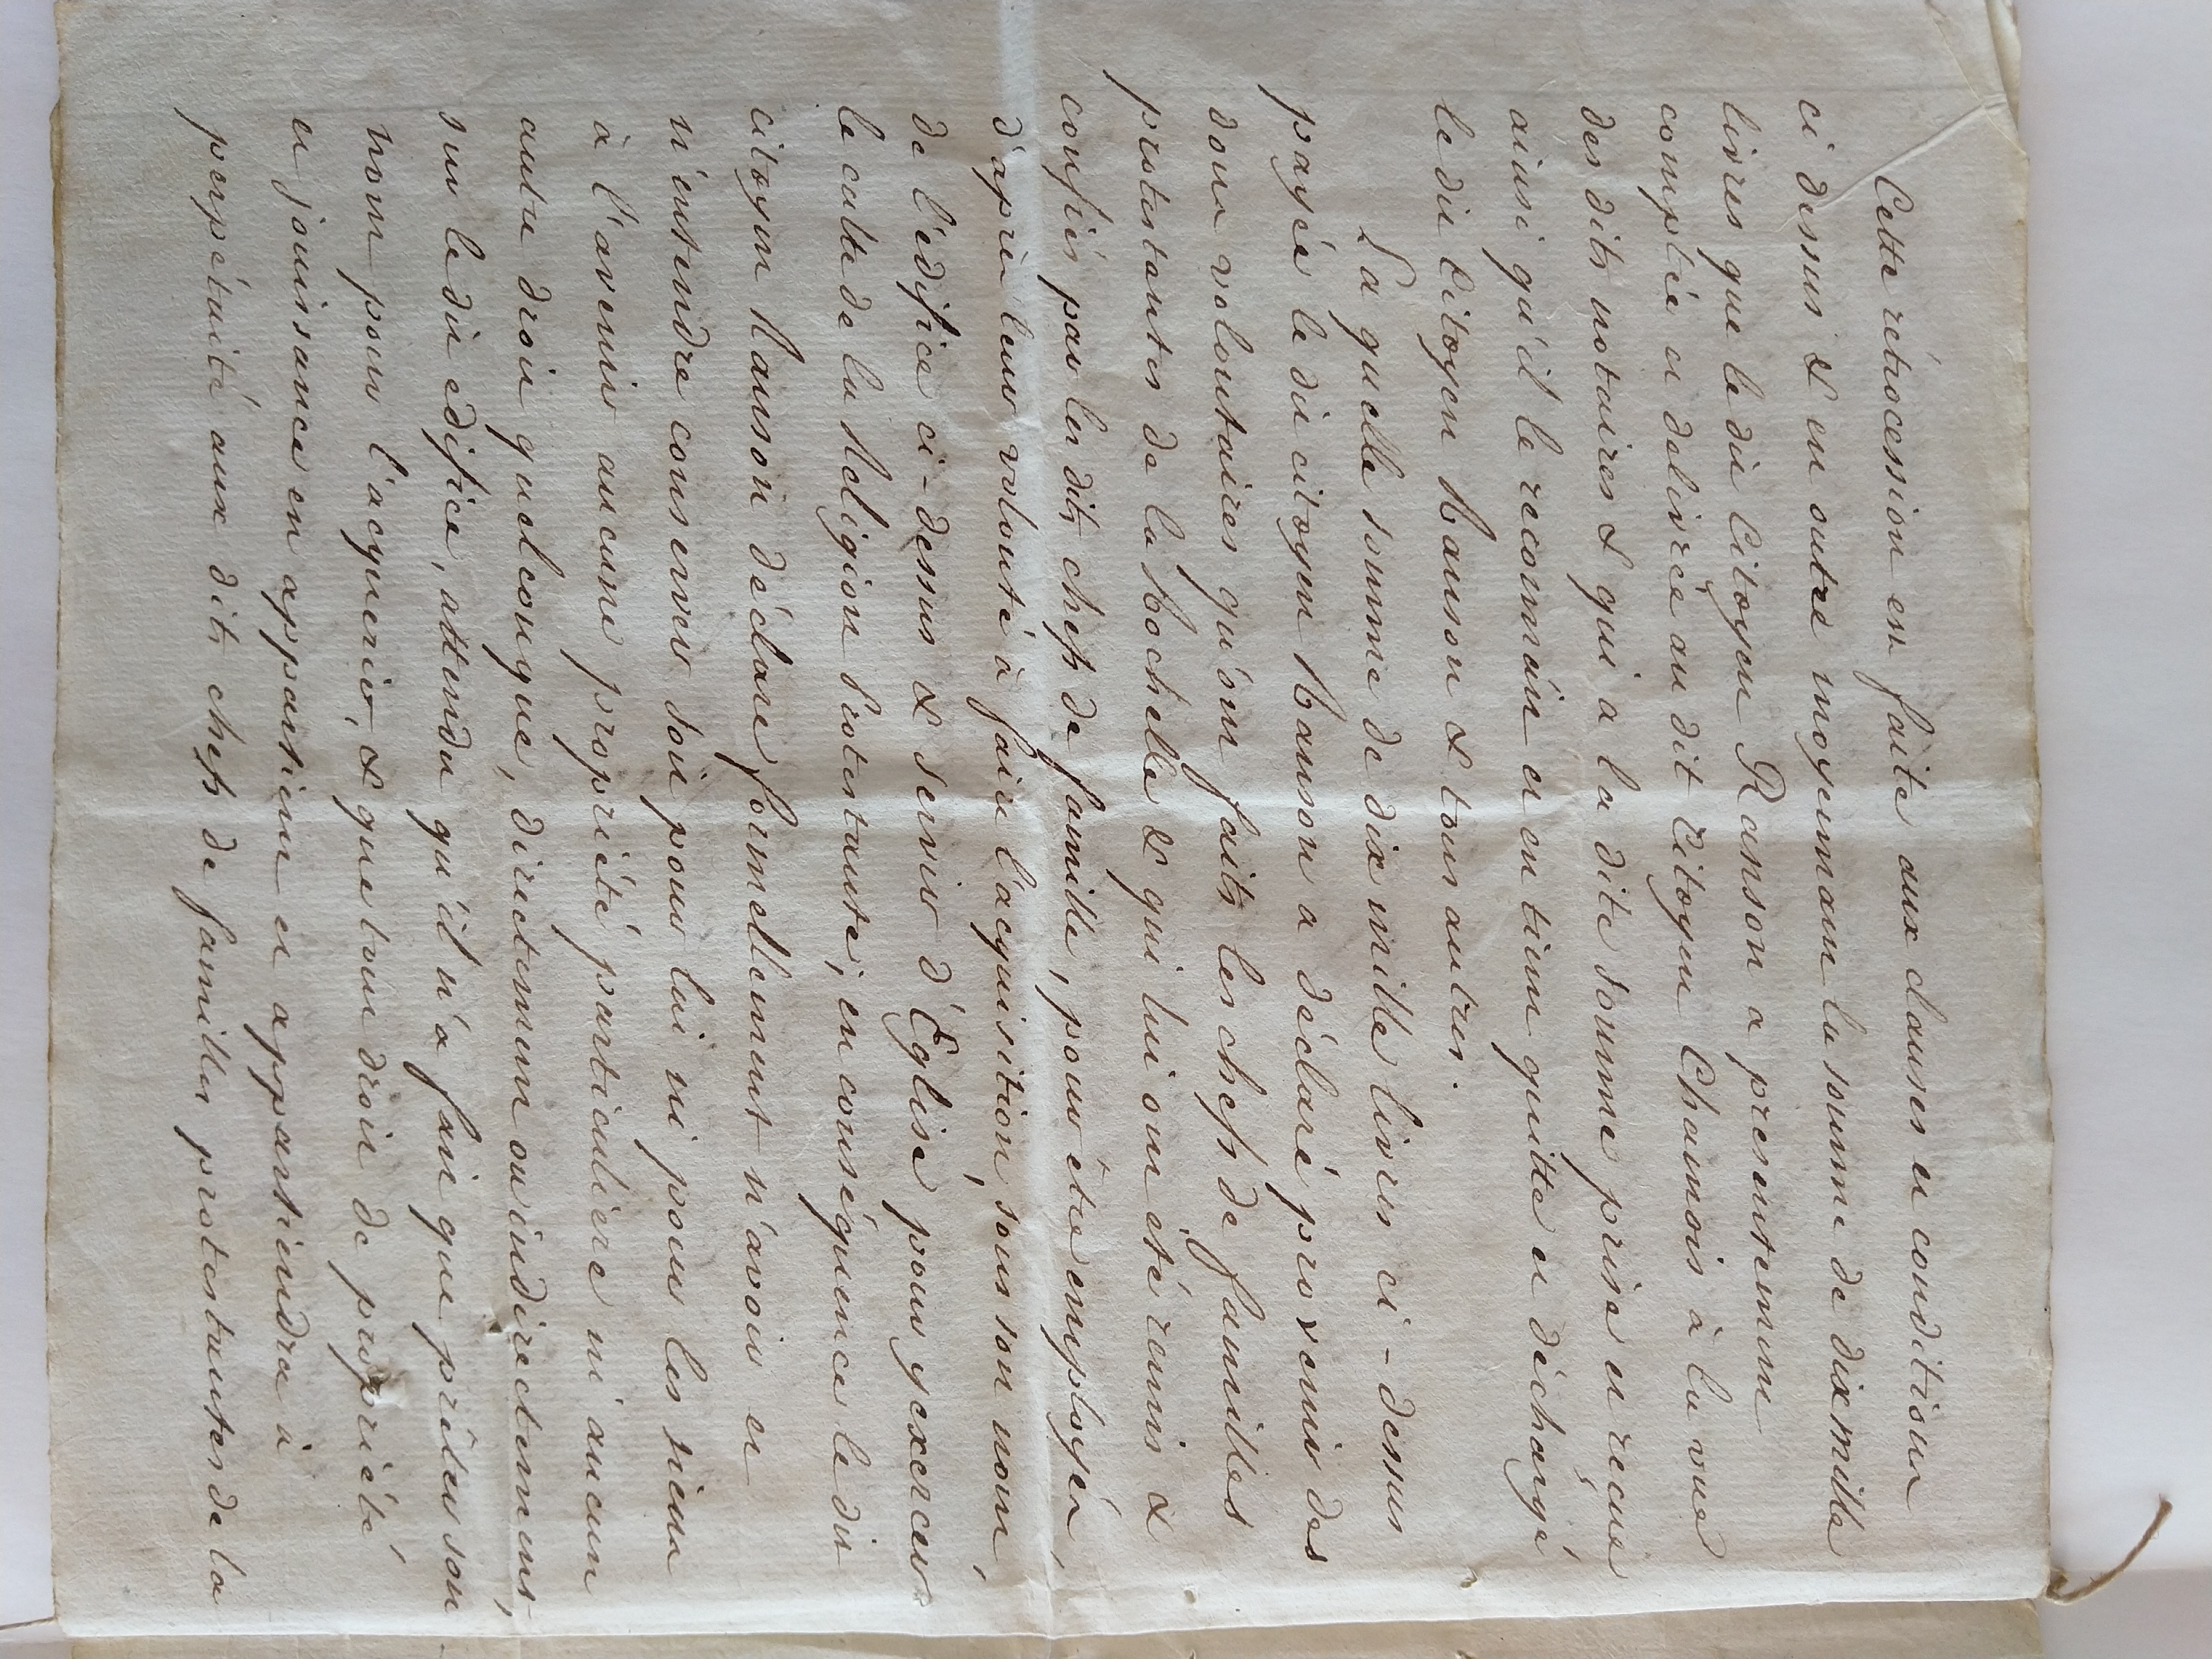 Cette rétrocession est faite aux clauses et conditions
ci dessus & en outre moyennant la somme de dix mille
livres que le dit Citoyen Ranson a presentement
comptée et delivrée au dit Citoyen Chamois à la vue
des dits notaires & qui a la dite somme prise et reçue
ainsi qu'il le reconnoit et en tient quitte et déchargé
le dit Citoyen Ranson & tous autres.
La quelle somme de dix mille livres ci-dessus
payée le dit citoyen Ranson a déclaré provenir des
dons volontaires qu'ont faits les chefs de familles
protestantes de la Rochelle & qui lui ont été remis &
confiés par les dits chefs de famille, pour être employés,
d'après leur volonté à faire l'acquisition, sous son nom,
de l'édifice ci-dessus & servir d'Eglise pour y exercer
le culte de la Religion Protestante; en conséquence le dit
citoyen Ranson déclare formellement n'avoir et
n'entendre conserver soit pour lui ni pour les siens
à l'avenir aucune propriété particuliere ni aucun
autre droit quelconque, directement ou indirectement,
sur le dit édifice, attendu qu'il n'a fait que prêter son
nom pour l'acquerir, & que tout droit de propriété
et jouissance en appartient et appartiendra à
perpétuité aux dits chefs de familles protestantes de la